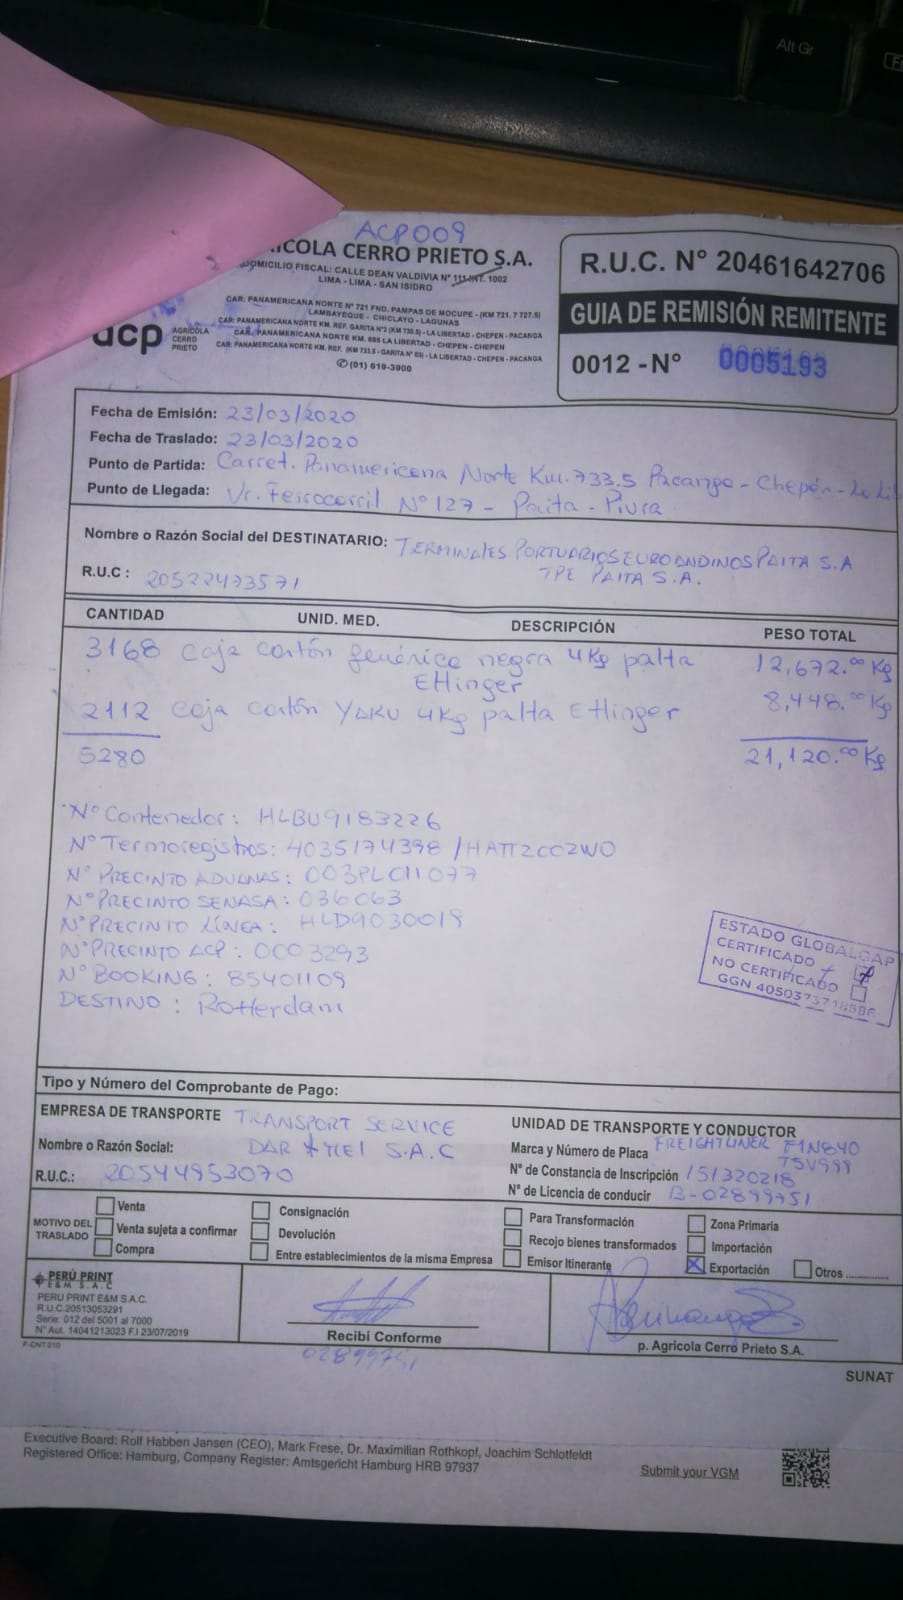 Alt Gr
ACP009
ICOLA CERRO PRIETO S.A.
DOMICILIO FISCAL: CALLE DEAN VALDIVIA N° 111-INT. 1002
LIMA - LIMA - SAN ISIDRO
CAR. PANAMERICANA NORTE N° 721 FND. PAMPAS DE MOCUPE - (KM 721. 7 727.5)
LAMBAYEQUE - CHICLAYO - LAGUNAS
CAR. PANAMERICANA NORTE KM. REF. GARITA N°2 (KM 730.5) - LA LIBERTAD - CHEPEN - PACANGA
CAR. PANAMERICANA NORTE KM. 695 LA LIBERTAD - CHEPEN - CHEPEN
CAR. PANAMERICANA NORTE KM. REF. (KM 733.5 - GARITA N° 03) - LA LIBERTAD - CHEPEN - PACANGA
(01) 619-3900
acp AGRÍCOLA
CERRO
PRIETO
R.U.C. N° 20461642706
GUIA DE REMISIÓN REMITENTE
0012 - N° 0005193
Fecha de Emisión: 23/03/2020
Fecha de Traslado: 23/03/2020
Punto de Partida: Carret. Panamericana Norte Km. 733.5 Pacanga - Chepén - La Li
Punto de Llegada: Vr. Ferrocarril N° 127 - Paita - Piura
Nombre o Razón Social del DESTINATARIO: TERMINALES PORTUARIOS EUROANDINOS PAITA S.A
TPE PAITA S.A.
R.U.C : 20522473571
CANTIDAD UNID. MED. DESCRIPCIÓN PESO TOTAL
3168 caja cartón genérica negra 4Kg palta 12,672.00 Kg
Ettinger
2112 caja cartón YAKU 4Kg palta Ettinger 8,448.00 Kg
5280 21,120.00 Kg
N° Contenedor: HLBU9183226
N° Termoregistros: 4035174398 / HATT2C02W0
N° PRECINTO ADUANAS: 003PLC11077
N° PRECINTO SENASA: 036063
N° PRECINTO LÍNEA: HLD9030019
N° PRECINTO ACP: 0003293
N° BOOKING: 85401109
DESTINO : Rotterdam
ESTADO GLOBALGAP
CERTIFICADO
NO CERTIFICADO
GGN 4050373718586
Tipo y Número del Comprobante de Pago:
EMPRESA DE TRANSPORTE TRANSPORT SERVICE
Nombre o Razón Social: DAR & MEI S.A.C
R.U.C.: 20544953070
UNIDAD DE TRANSPORTE Y CONDUCTOR
Marca y Número de Placa FREIGHTLINER F1N840
T5V999
N° de Constancia de Inscripción 151320218
N° de Licencia de conducir B-02899751
MOTIVO DEL TRASLADO
Venta
Venta sujeta a confirmar
Compra
Consignación
Devolución
Entre establecimientos de la misma Empresa
Para Transformación
Recojo bienes transformados
Emisor Itinerante
Zona Primaria
Importación
Exportación
Otros ..............
PERÚ PRINT
E&M S.A.C
PERU PRINT E&M S.A.C.
R.U.C.20513053291
Serie: 012 del 5001 al 7000
N° Aut. 14041213023 F.I 23/07/2019
F-CNT.010
Recibí Conforme
02899751
p. Agricola Cerro Prieto S.A.
SUNAT
Executive Board: Rolf Habben Jansen (CEO), Mark Frese, Dr. Maximilian Rothkopf, Joachim Schlotfeldt
Registered Office: Hamburg, Company Register: Amtsgericht Hamburg HRB 97937
Submit your VGM